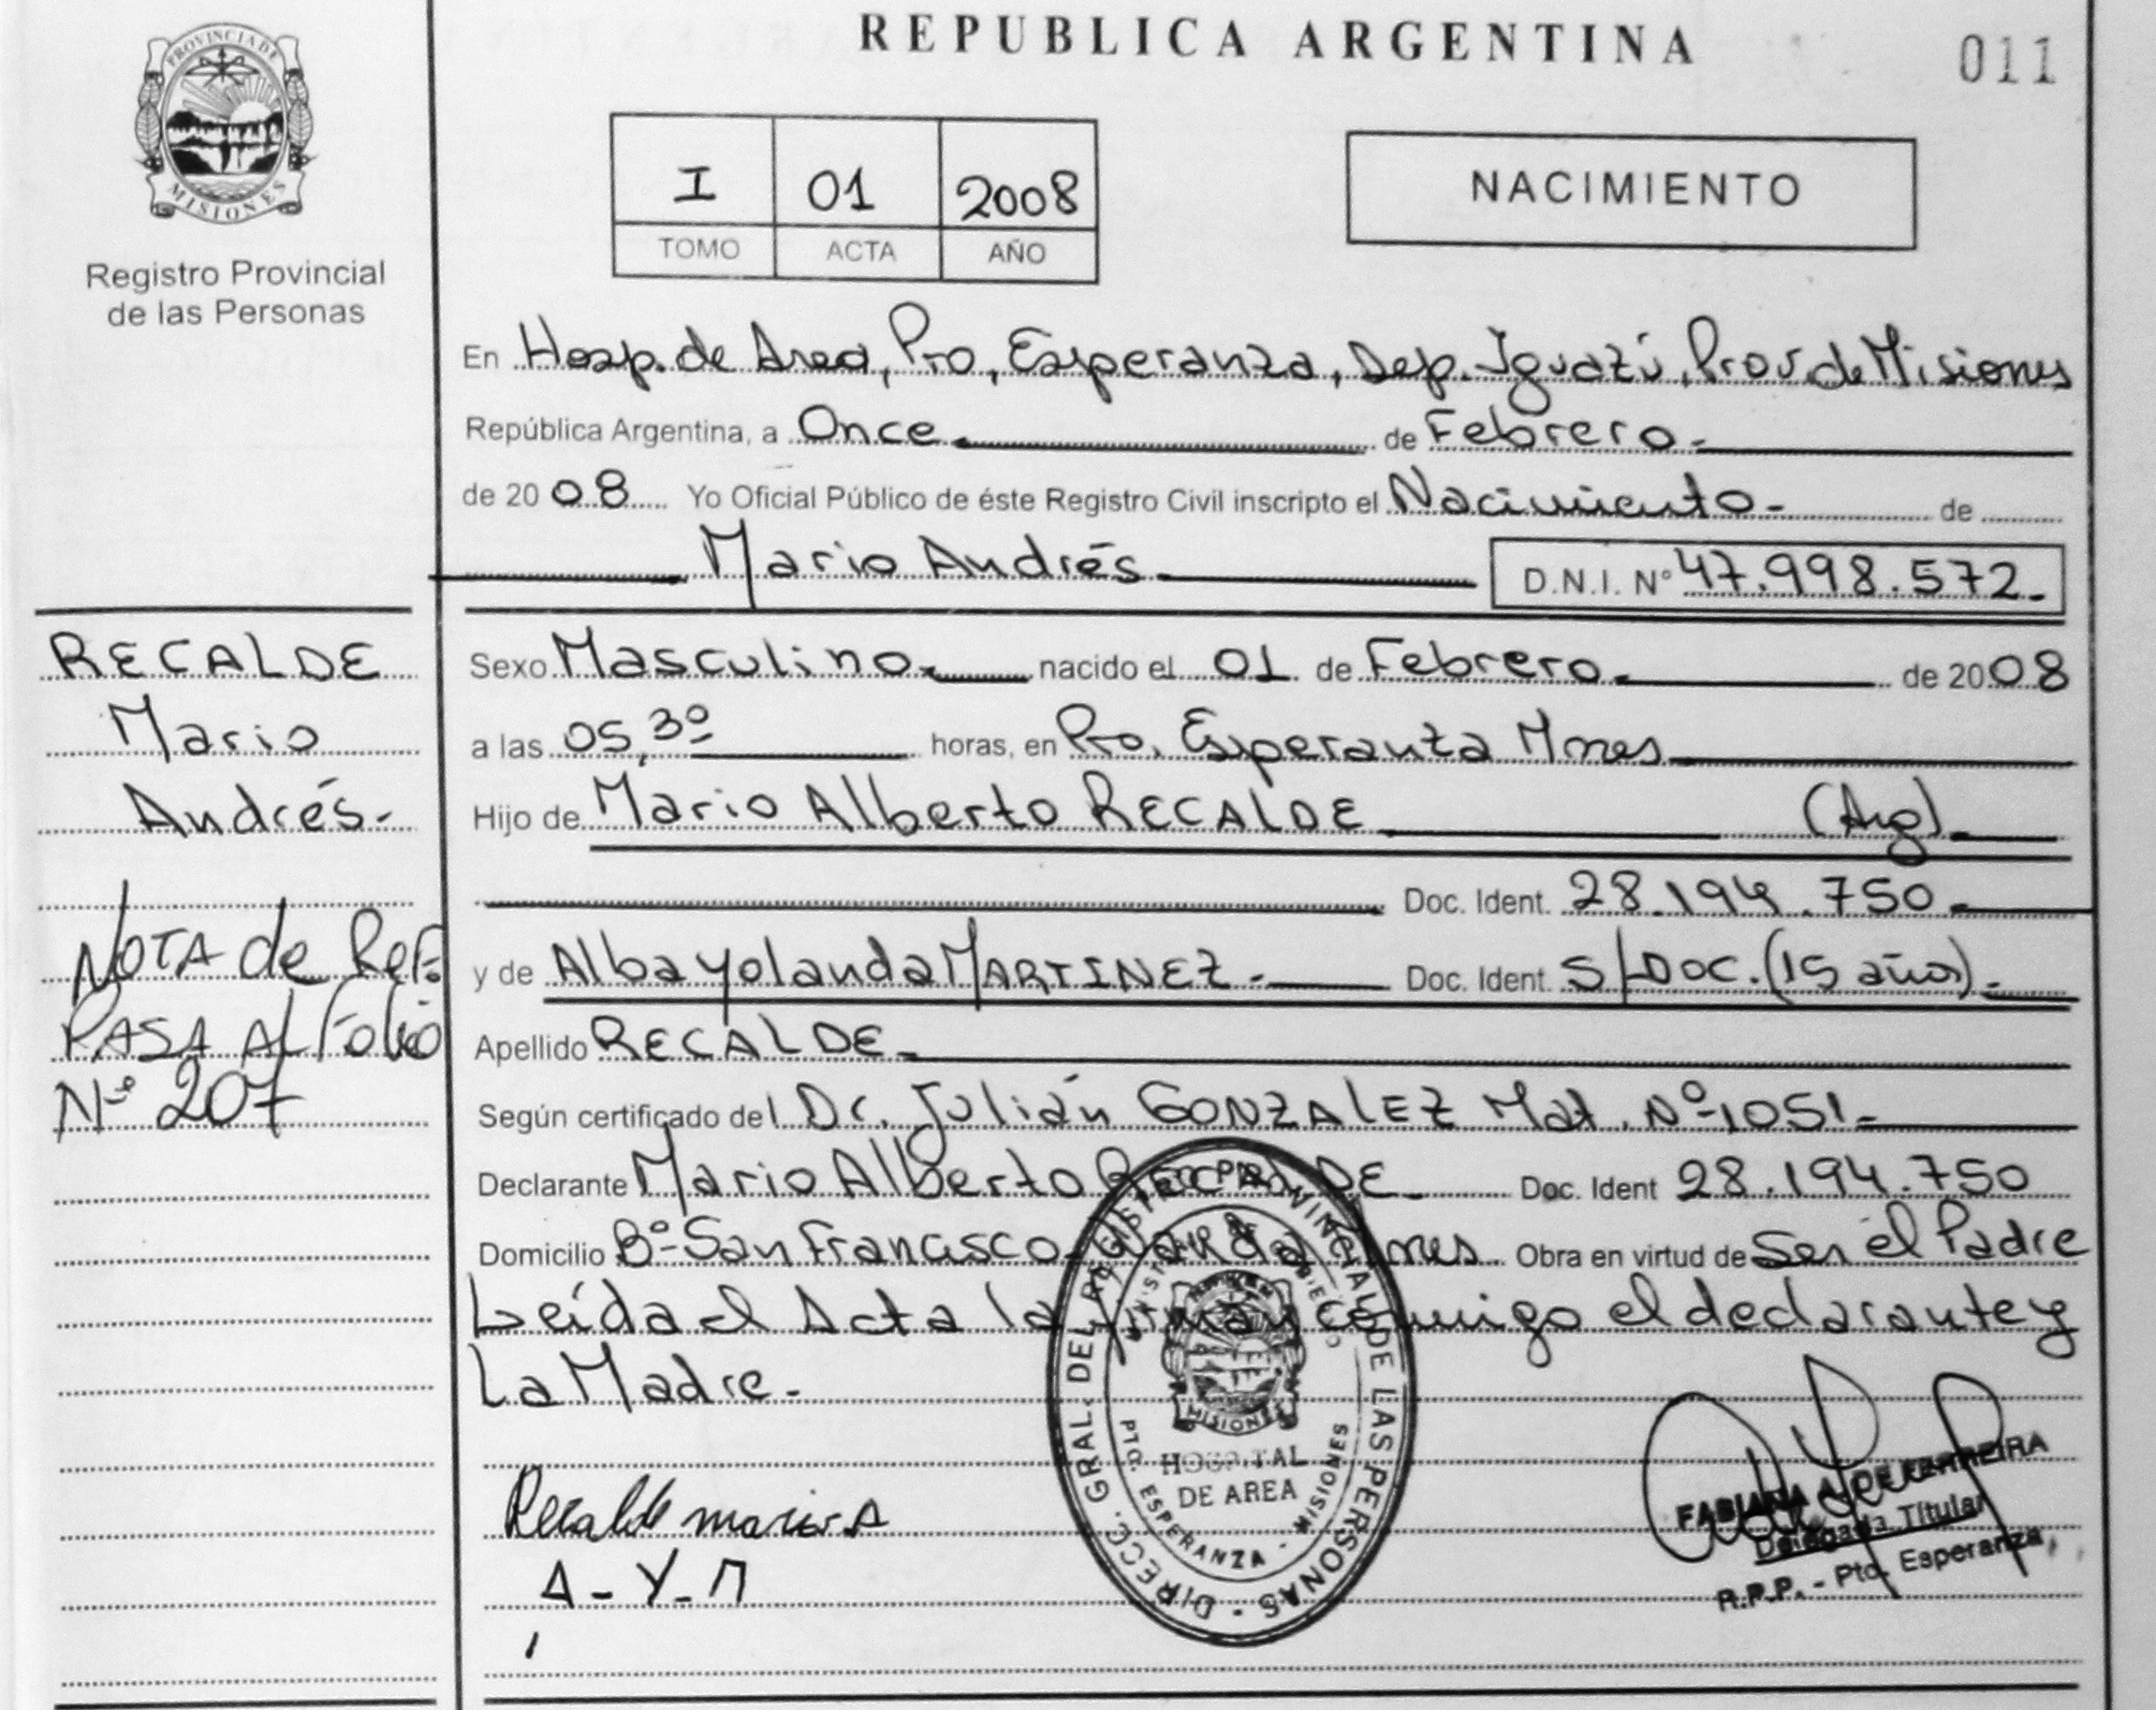 REPUBLICA ARGENTINA
011
PROVINCIA DE
MISIONES
Registro Provincial
de las Personas
I 01 2008
TOMO ACTA AÑO
NACIMIENTO
En Hosp. de Area, Pto, Esperanza, Dep. Iguazú, Prov de Misiones
República Argentina, a Once de Febrero.
de 2008 Yo Oficial Público de éste Registro Civil inscripto el Nacimiento- de
Mario Andrés D.N.I. Nº 47.998.572.
RECALDE
Mario
Andrés-
NOTA de Ref.
PASA AL Folio
Nº 207
Sexo Masculino. nacido el 01 de Febrero. de 2008
a las 05,30 horas, en Pto. Esperanza Mnes
Hijo de Mario Alberto RECALDE (Arg)
Doc. Ident. 28.194.750
y de Alba Yolanda MARTINEZ. Doc. Ident. S/Doc. (15 años).
Apellido RECALDE
Según certificado del Dr. Julián GONZALEZ Mat. Nº 1051-
Declarante Mario Alberto RECALDE Doc. Ident 28.194.750
Domicilio Bº San Francisco-Wanda Mnes. Obra en virtud de Ser el Padre
Leída el Acta la firman conmigo el declarante y
La Madre-
DIRECC. GRAL. DEL REGISTRO PROVINCIAL DE LAS PERSONAS
MISIONES
HOSPITAL
DE AREA
PTO. ESPERANZA - MISIONES
Recalde mario A
A-Y-M
FABIANA A. DE FERREIRA
Delegada Titular
R.P.P. - Pto. Esperanza